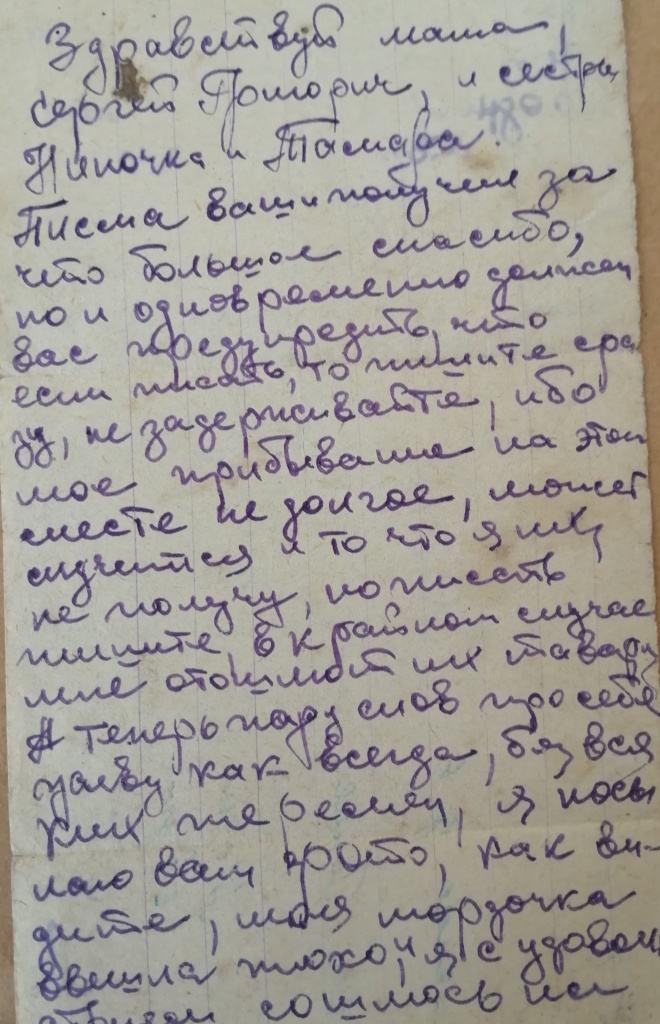 Здравствуй мама,
Сергей Григорич, и сестры
Ниночка и Тамара.
Писма ваши получил за
что большое спасибо,
но и одновременно должен
вас предупредить, что
если писать, то пишите сра
зу, не задерживайте, ибо
мое прибывание на этом
месте не долгое, может
случится и то что я их
не получу, но писать
пишите, в крайном случае
мне отошлют их
А теперь пару слов про себя
живу как всегда, без вся
ких перемен, я посы
лаю вам фото, как ви-
дите, моя мордочка
вышла плохой, я с удоволь
ствием сошлюсь на